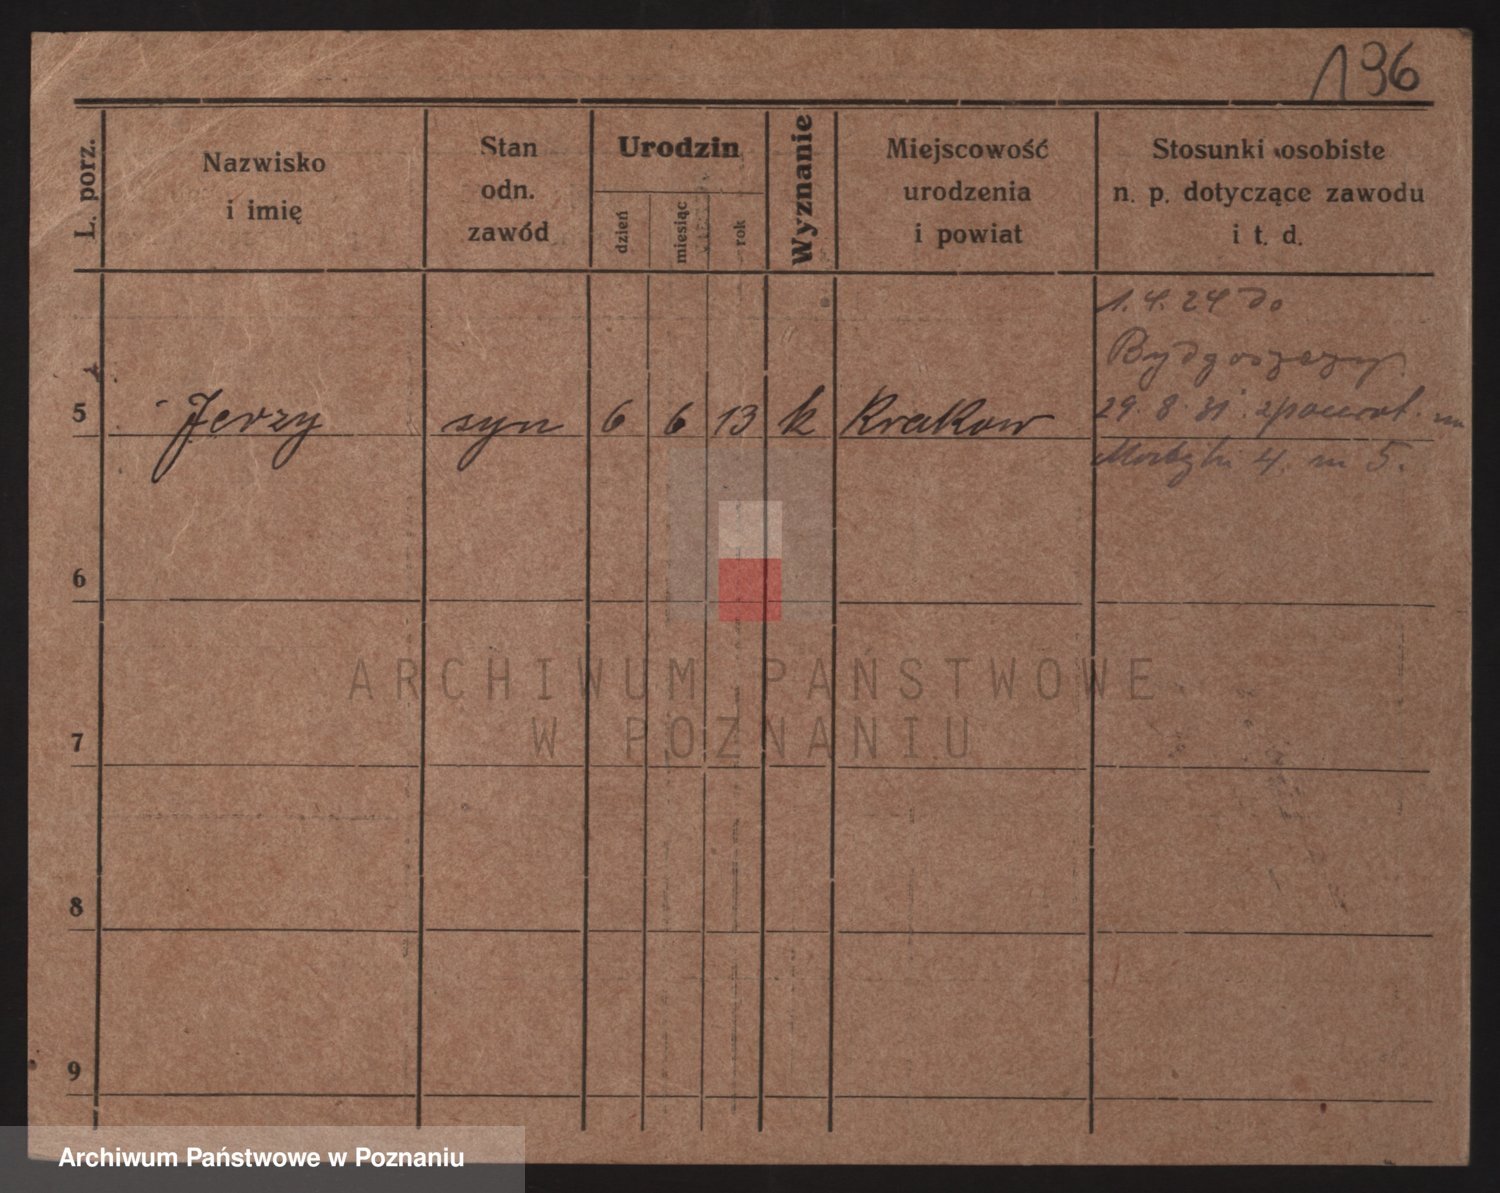 136
L. porz.
Nazwisko
i imię
Stan
odn.
zawód
Urodzin
dzień
miesiąc
rok
Wyznanie
Miejscowość
urodzenia
i powiat
Stosunki osobiste
n. p. dotyczące zawodu
i t. d.
5 Jerzy syn 6 6 13 k Krakow
1. 4. 24 do
Bydgoszczy.
29. 8. 31
4. m 5.
6
7
8
9
ARCHIWUM PAŃSTWOWE
W POZNANIU
Archiwum Państwowe w Poznaniu